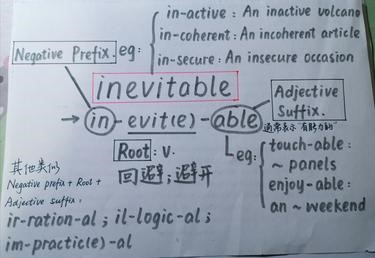 in-active : An inactive volcano
Negative Prefix. eg: in-coherent : An incoherent article
in-secure : An insecure occasion
inevitable
Adjective
Suffix.
→ in - evit(e) - able
通常表示"有能力的"
Root : v.
回避；避开
eg: touch-able :
~ panels
enjoy-able :
an ~ weekend
其他类似
Negative prefix + Root +
Adjective suffix :
ir-ration-al ; il-logic-al ;
im-practic(e)-al